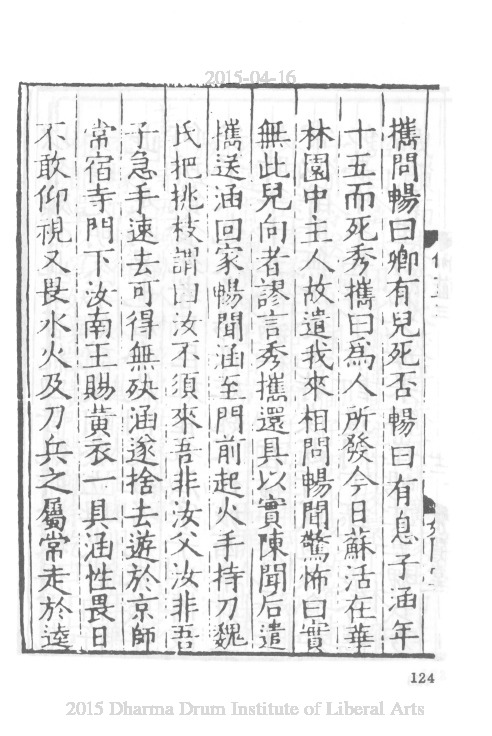 2015-04-16
攜問暢曰卿有兒死否暢曰有息子涵年
十五而死秀攜曰爲人所發今日蘇活在華
林園中主人故遣我來相問暢聞驚怖曰實
無此兒向者謬言秀攜還具以實陳聞后遣
攜送涵回家暢聞涵至門前起火手持刀魏
氏把挑枝謂曰汝不須來吾非汝父汝非吾
子急手速去可得無殃涵遂捨去遊於京師
常宿寺門下汝南王賜黃衣一具涵性畏日
不敢仰視又畏水火及刀兵之屬常走於逵
124
2015 Dharma Drum Institute of Liberal Arts